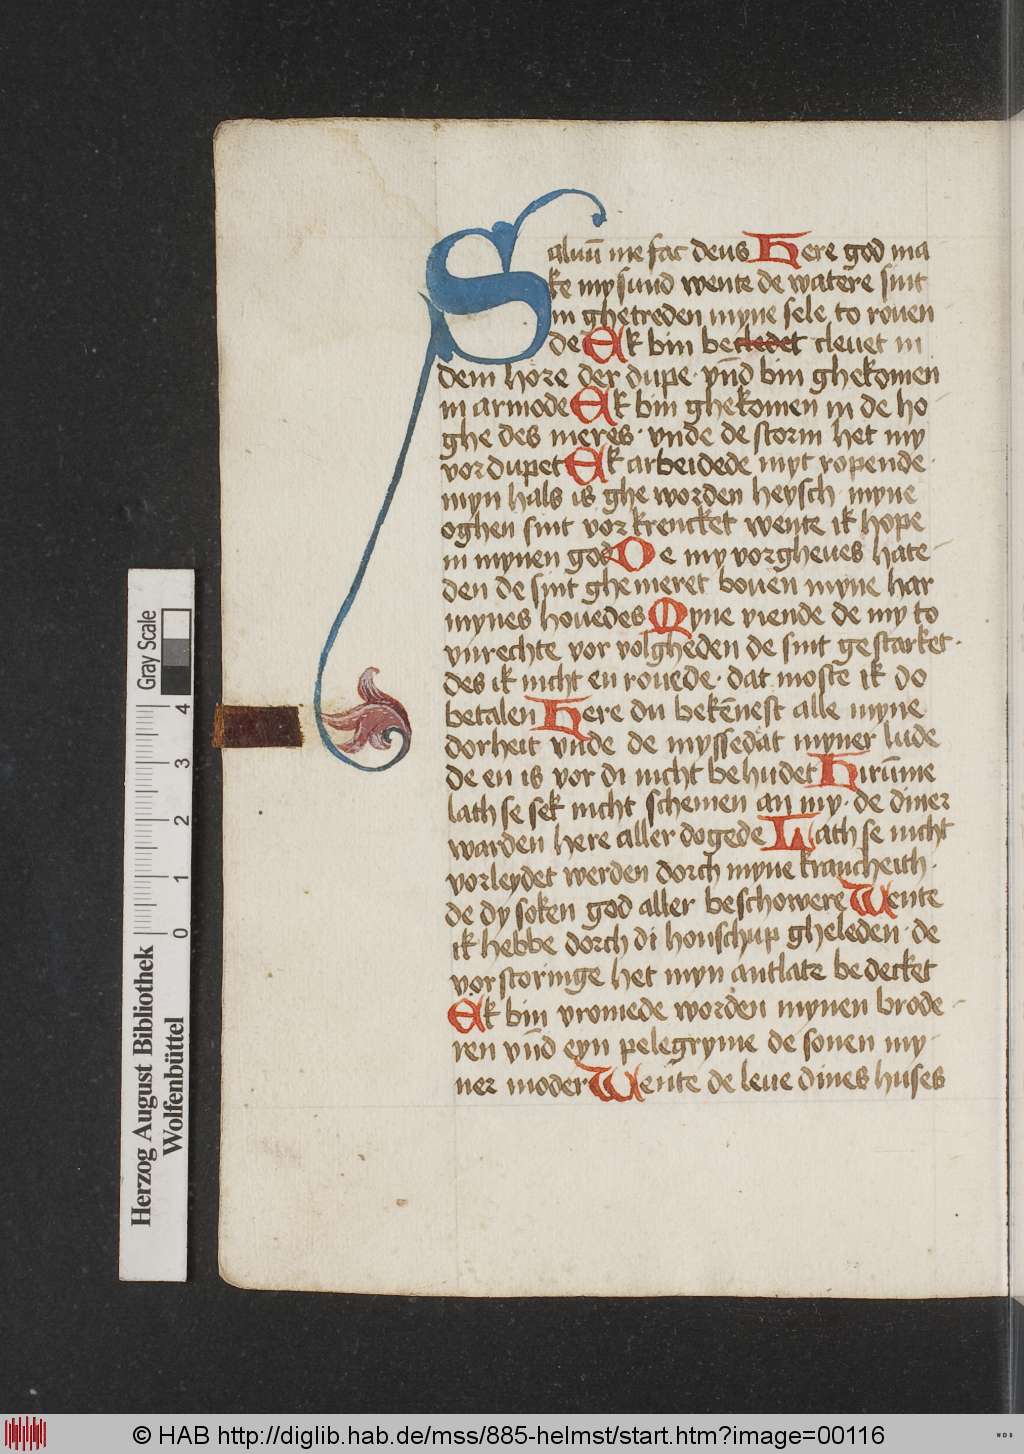 Saluū me fac deus Here god ma
ke my sund wente de watere sint
in ghetreden myne sele to rouen
de Ek bin becledet cleuet in
dem hore der dupe · vn̄d bin ghekomen
in armode Ek bin ghekomen in de ho
ghe des meres · vnde de storm het my
vordupet Ek arbeidede myt ropende ·
myn hals is ghe worden heysch · myne
oghen sint vorkrencket wente ik hope
in mynen god De my vorgheues hate
den de sint ghemeret bouen myne har
mynes houedes Myne viende de my to
vnrechte vor volgheden de sint gestarket ·
des ik nicht en rouede · dat moste ik do
betalen Here du bekēnest alle myne
dorheit vnde de myssedat myner lude
de en is vor di nicht behudet Hirūme
lath se sek nicht schemen an my · de diner
warden here aller dogede Lath se nicht
vorleydet werden dorch myne krancheith ·
de dy soken god aller beschowere Wente
ik hebbe dorch di honschup gheleden · de
vorstoringe het myn antlate bedecket
Ek bin vromede worden mynen brode
ren vn̄d eyn pelegryme de sonen my
ner moder Wente de leue dines huses
Gray Scale
4
3
2
1
0
Herzog August Bibliothek
Wolfenbüttel
© HAB http://diglib.hab.de/mss/885-helmst/start.htm?image=00116